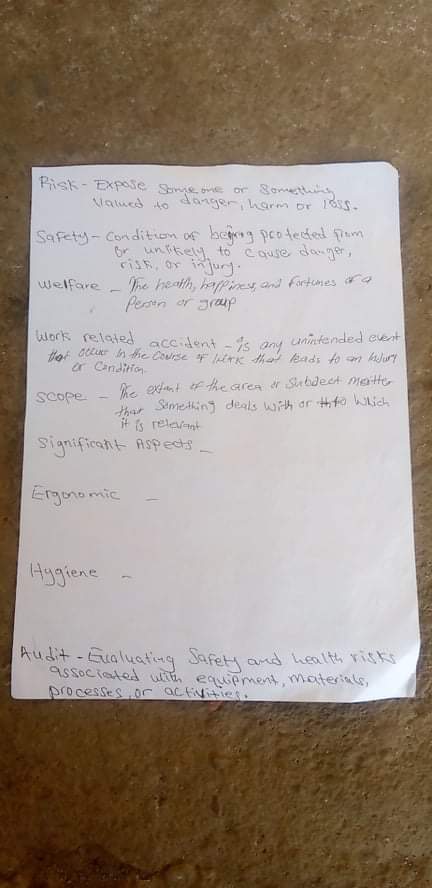 Risk - Expose someone or something
valued to danger, harm or loss.
Safety - Condition of being protected from
or unlikely to cause danger,
risk, or injury.
Welfare - The health, happiness, and fortunes of a
Person or group
Work related accident - is any unintended event
that occur in the course of work that leads to an injury
or condition.
SCOPE - The extent of the area or Subject matter
that Something deals with or to which
it is relevant
Significant Aspects -
Ergonomic -
Hygiene -
Audit - Evaluating Safety and health risks
associated with equipment, materials,
processes, or activities.